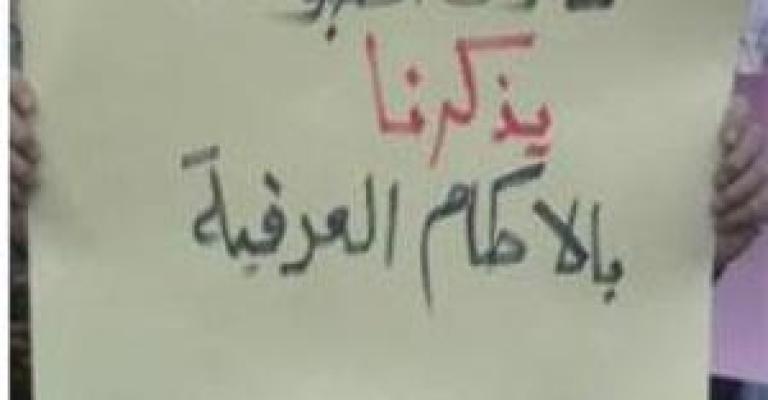 يذكرنا
بالاحكام العرفية